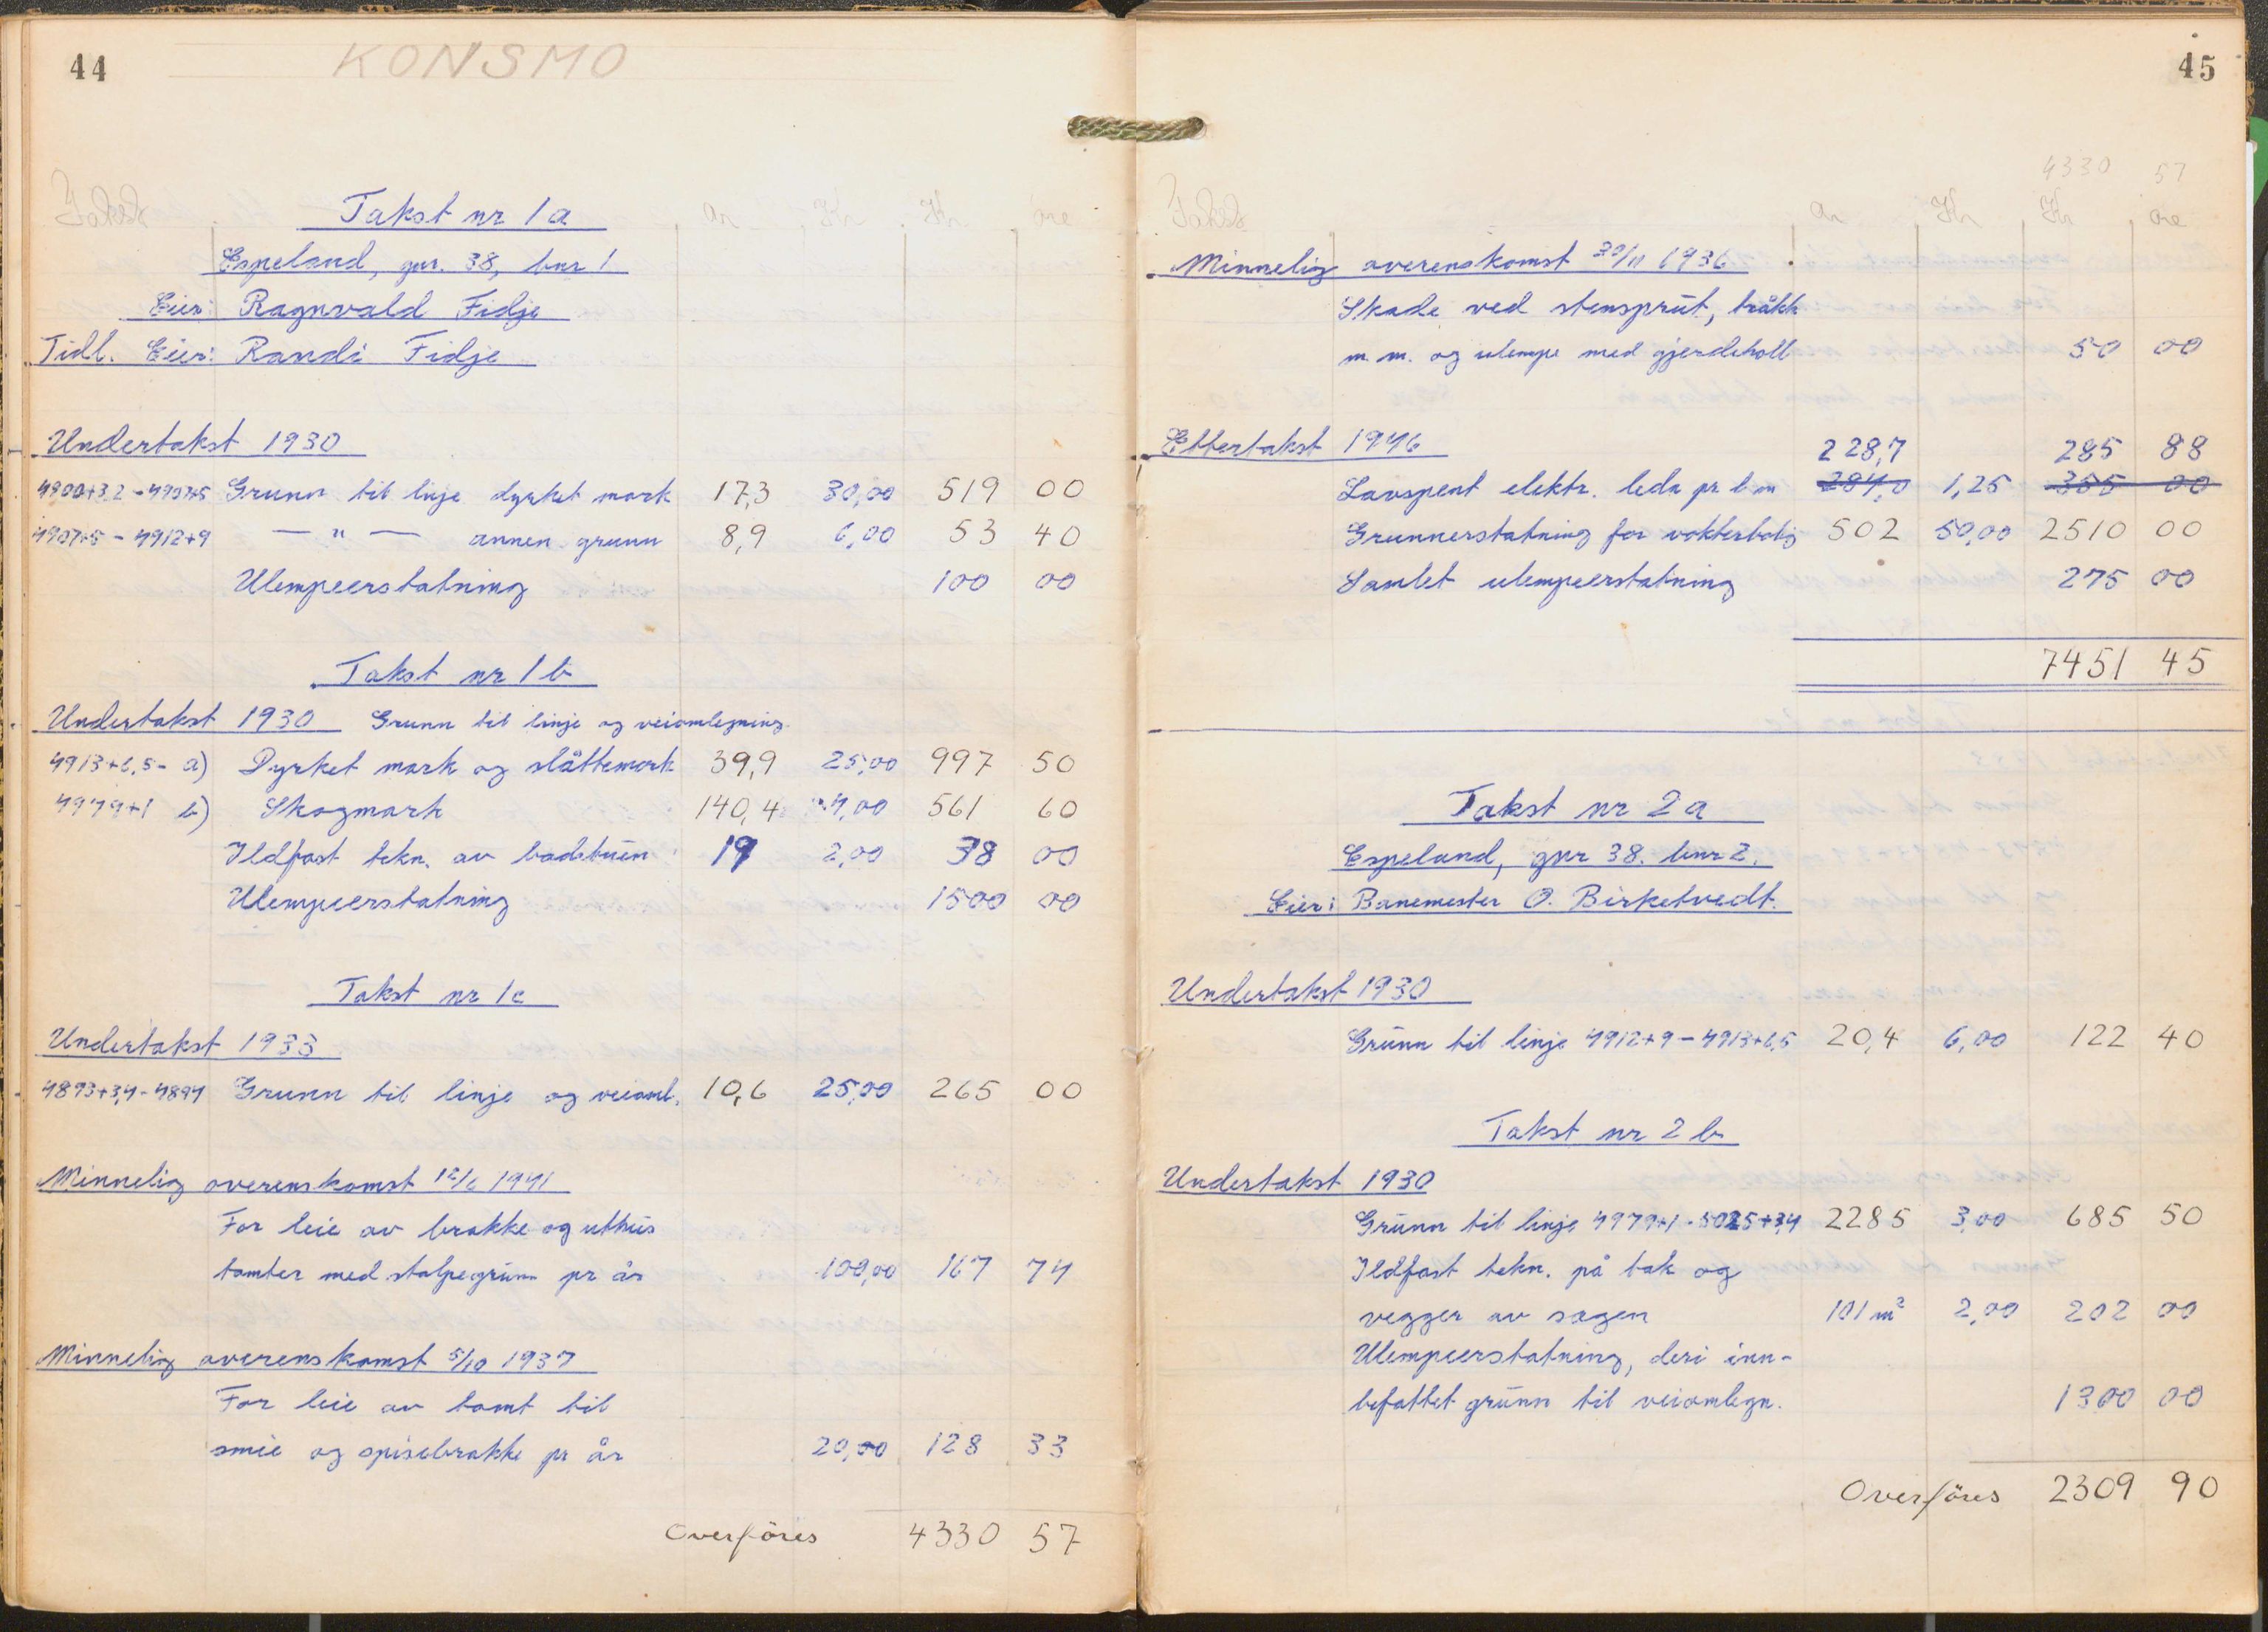 44
KONSMO
Takst ar Kr Kr øre
Takst nr 1a
Espeland, gnr. 38, bnr 1
Eier: Ragnvald Fidje
Tidl. Eier: Randi Fidje
Undertakst 1930
4900+3,2 - 4907+5 Grunn til linje dyrket mark 17,3 30,00 519 00
4907+5 - 4912+9 — " — annen grunn 8,9 6,00 53 40
Ulempeerstatning 100 00
Takst nr 1b
Undertakst 1930 Grunn til linje og veiomlegning.
4913+6,5 - a) Dyrket mark og slåttemark 39,9 25,00 997 50
4979+1 b) Skogmark 140,4 4,00 561 60
Ildfast tekn. av badstuen 19 2,00 38 00
Ulempeerstatning 1500 00
Takst nr 1c
Undertakst 1933
4893+3,4 - 4894 Grunn til linje og veioml. 10,6 25,00 265 00
Minnelig overenskomst 12/6 1941
For leie av brakke og uthus
tomter med stolpegrunn pr år 100,00 167 74
Minnelig overenskomst 5/10 1937
For leie av tomt til
smie og spisebrakke pr år 20,00 128 33
Overföres 4330 57
45
4330 57
Takst ar Kr Kr øre
Minnelig overenskomst 30/11 1936
Skade ved stensprut, tråkk
m.m. og ulempe med gjerdehold 50 00
Ettertakst 1946 228,7 285 88
Lavspent elektr. ledn pr l m 284,0 1,25 355 00
Grunnerstatning for vokterbolig 502 50,00 2510 00
Samlet ulempeerstatning 275 00
7451 45
Takst nr 2a
Espeland, gnr 38. bnr 2.
Eier: Banemester O. Birketvedt.
Undertakst 1930
Grunn til linje 4912+9 - 4913+6,5 20,4 6,00 122 40
Takst nr 2b
Undertakst 1930
Grunn til linje 4979+1 - 5025+3,4 2285 3,00 685 50
Ildfast tekn. på tak og
vegger av sagen 101 m² 2,00 202 00
Ulempeerstatning, deri inn-
befattet grunn til veiomlegn. 1300 00
Overföres 2309 90